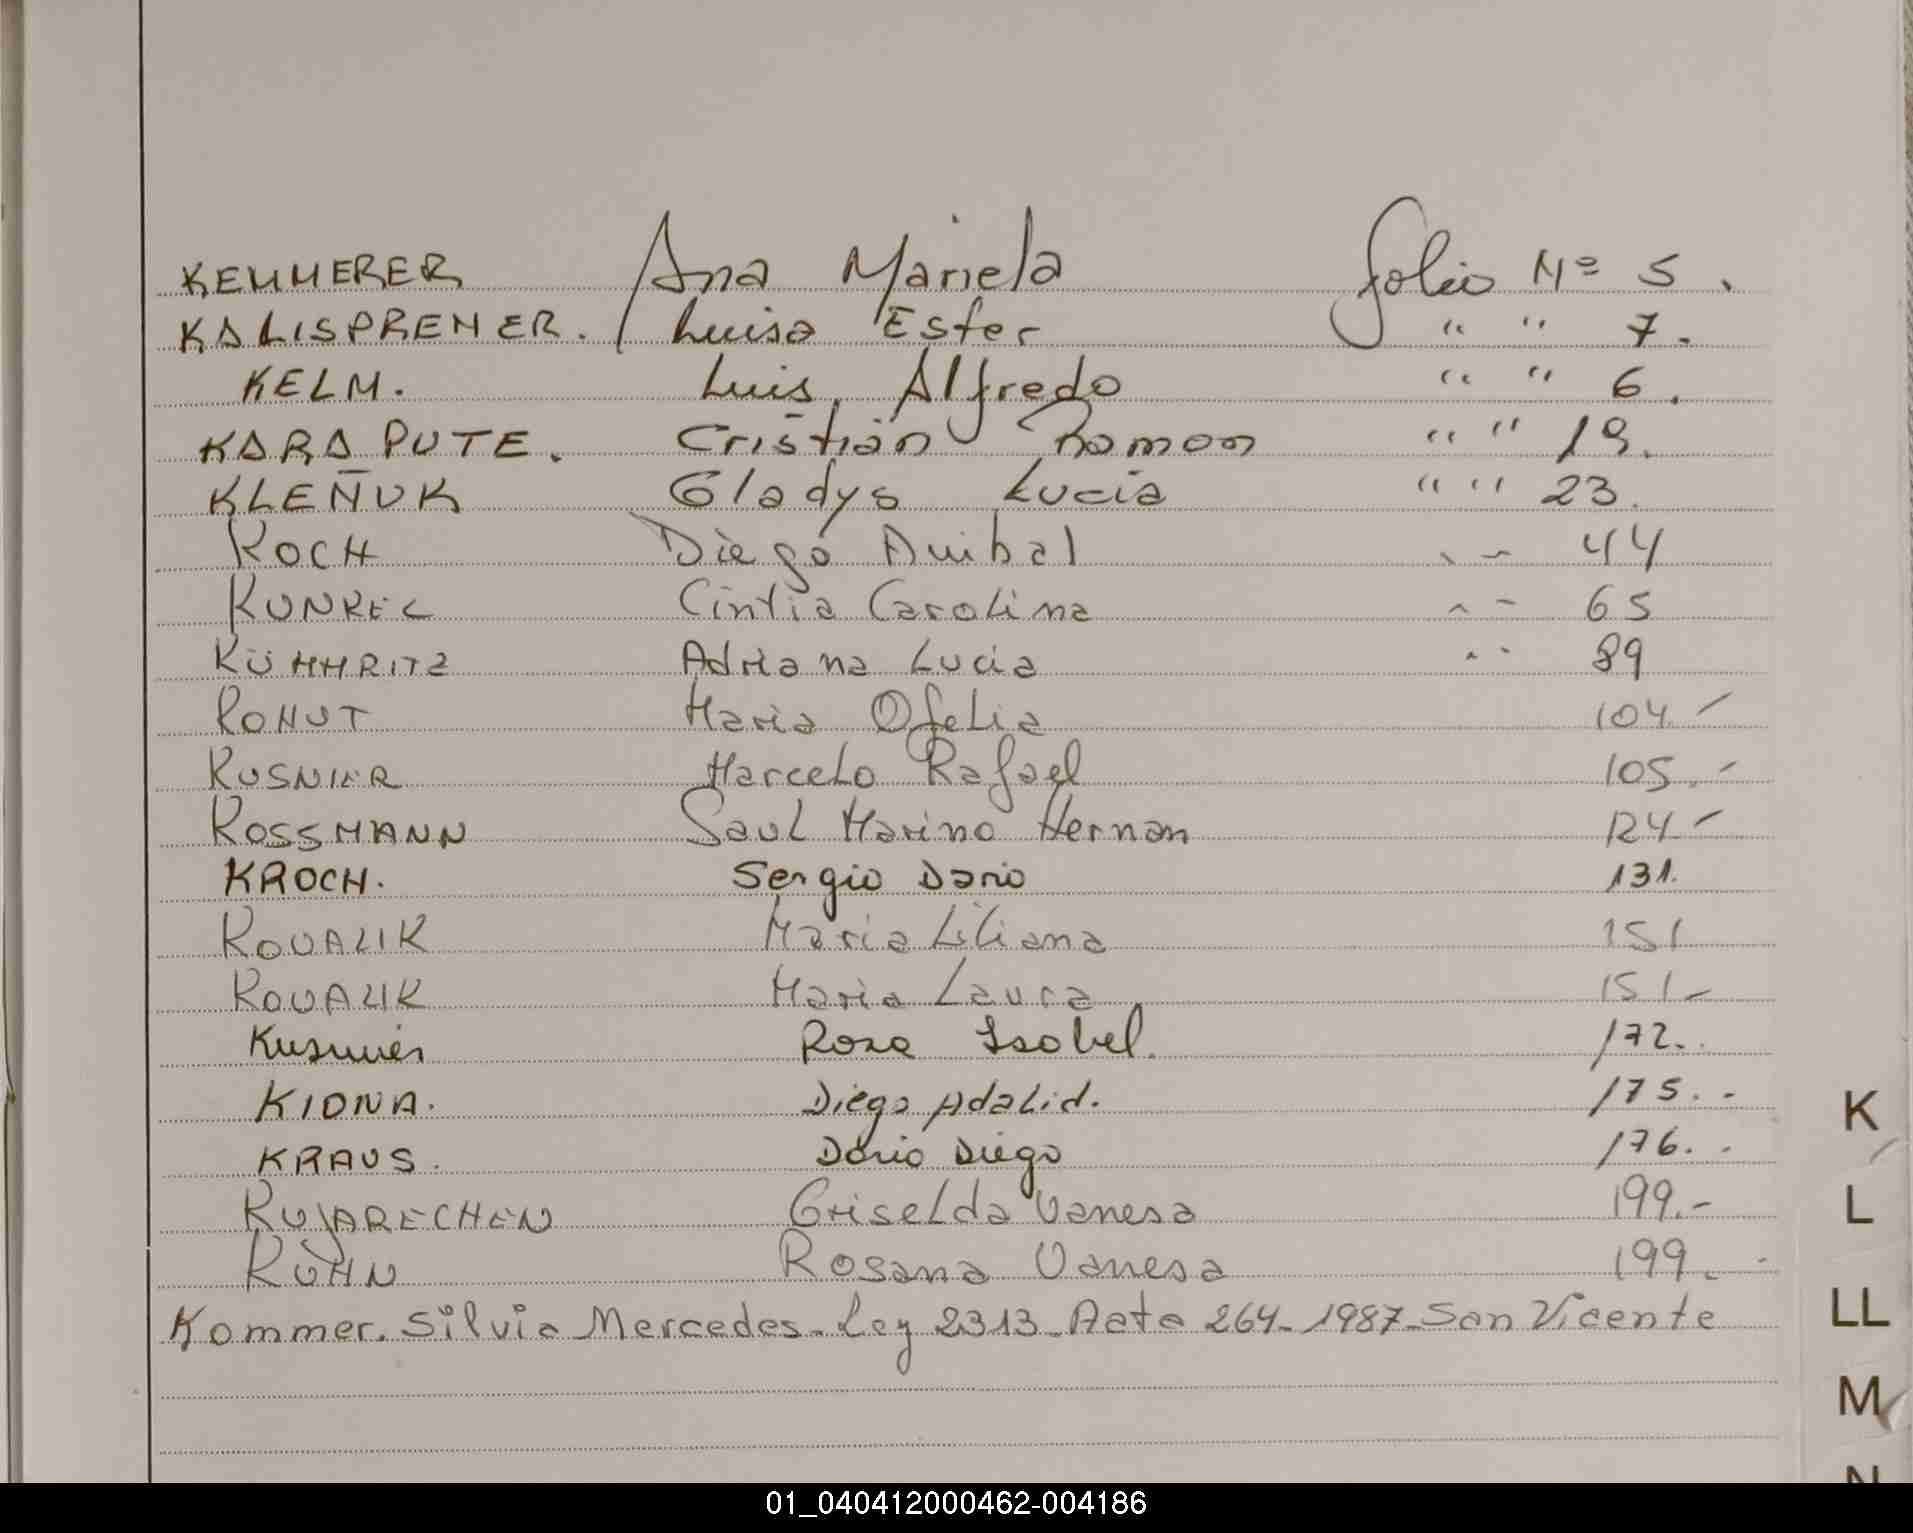 KEMMERER Ana Mariela folio Nº 5.
KALISPREMER. Luisa Ester " " 7.
KELM. Luis Alfredo " " 6.
KARAPUTE. Cristián Ramon " " 19.
KLEÑUK Gladys Lucia " " 23.
KOCH Diego Anibal " " 44
KUNKEL Cintia Carolina " " 65
KÜMMRITZ Adriana Lucia " " 89
KOHUT Maria Ofelia 104.-
KUSNIER Marcelo Rafael 105.-
KOSSMANN Saul Marino Hernan 124-
KROCH. Sergio Dario 131.
KOVALIK Maria Liliana 151
KOVALIK Maria Laura 151-
Kusnier Rosa Isabel. 172.
KIONA. Diego Adalid. 175.-
KRAUS. Dario Diego 176.-
KUJARECHEN Griselda Vanesa 199.-
KUHN Rosana Vanesa 199.-
Kommer. Silvia Mercedes - Ley 2313 - Acta 264 - 1987 - San Vicente
K
L
LL
M
N
01_040412000462-004186